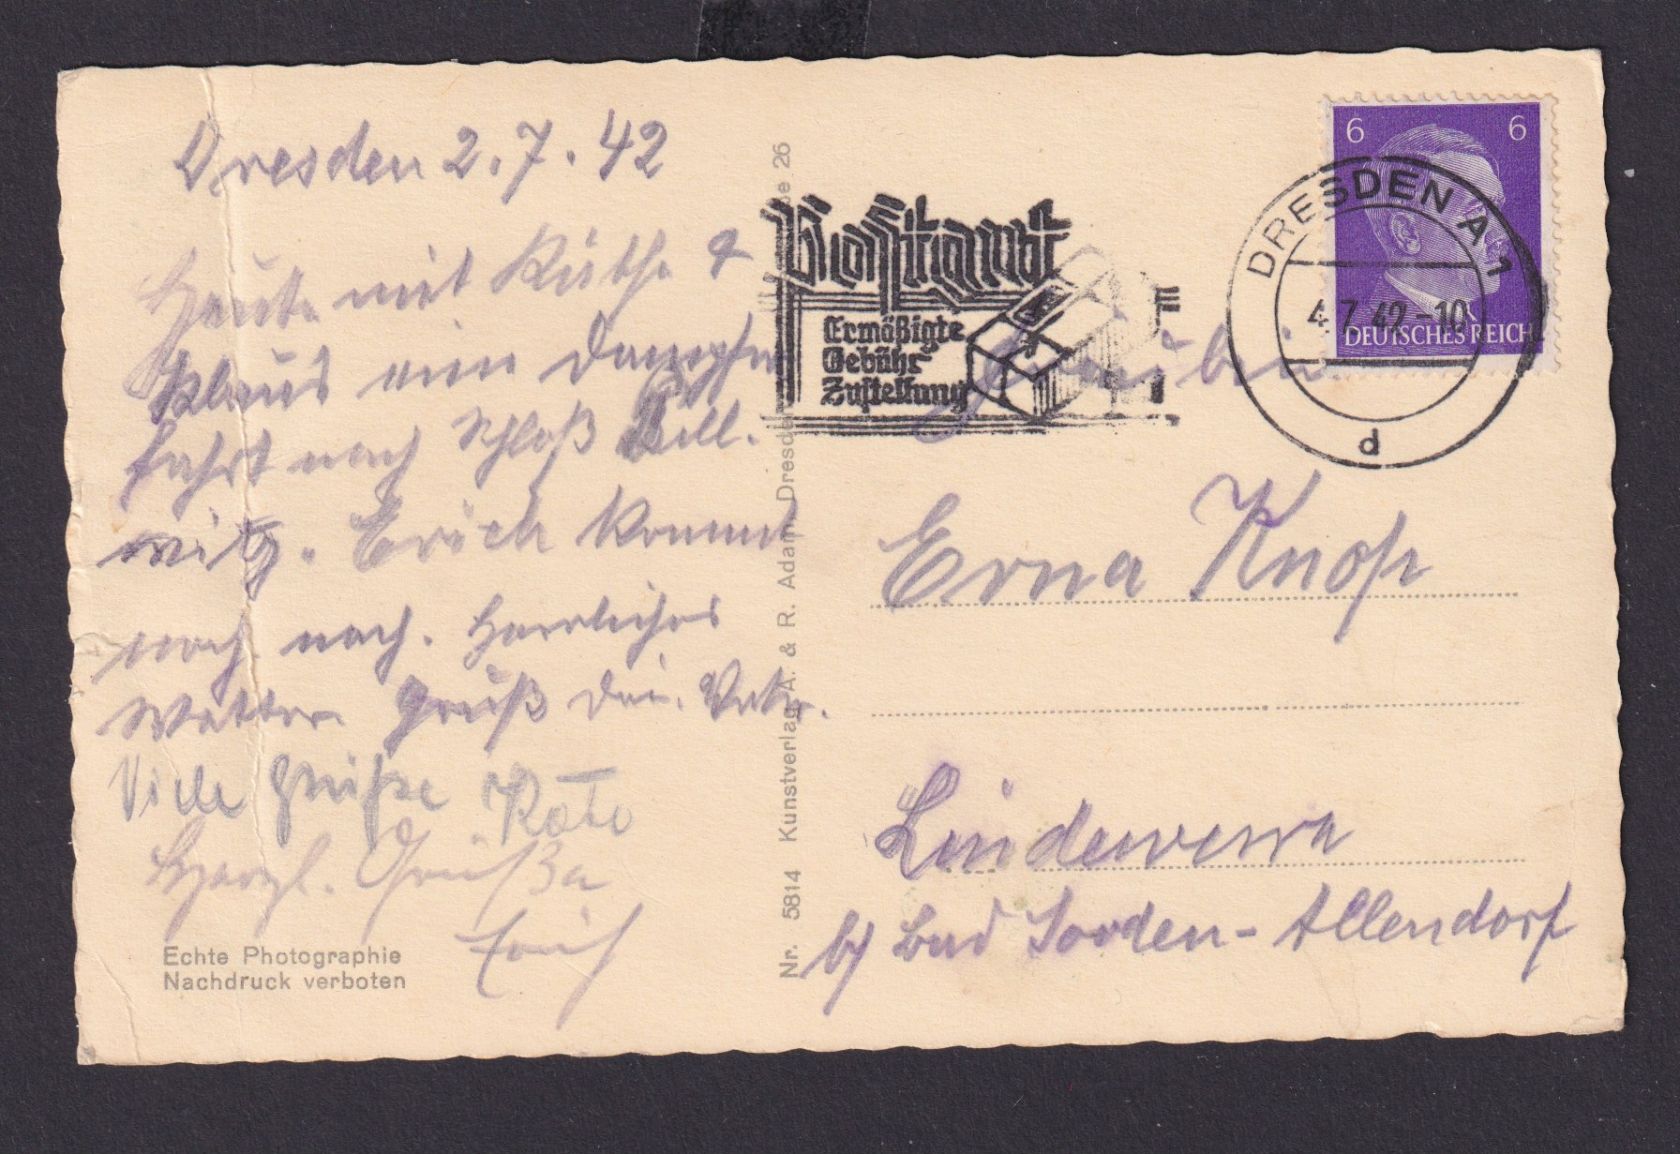 Dresden 2.7.42
Heute mit Käthe &
Klaus eine Dampfer
fahrt nach Schloß Pill.
nitz. Erich kommt
noch nach. Herrliches
Wetter Gruß Dein. Vater.
Viele Grüße Käte
Herzl. Grüße
Erich
Echte Photographie
Nachdruck verboten
Nr. 5814 Kunstverlag A. & R. Adam, Dresden 26
Postgut
Ermäßigte
Gebühr
Zustellung
6 6
DEUTSCHES REICH
DRESDEN A 1
4.7.42-10
d
Erna Knop
Lindewerra
b/ Bad Sooden-Allendorf